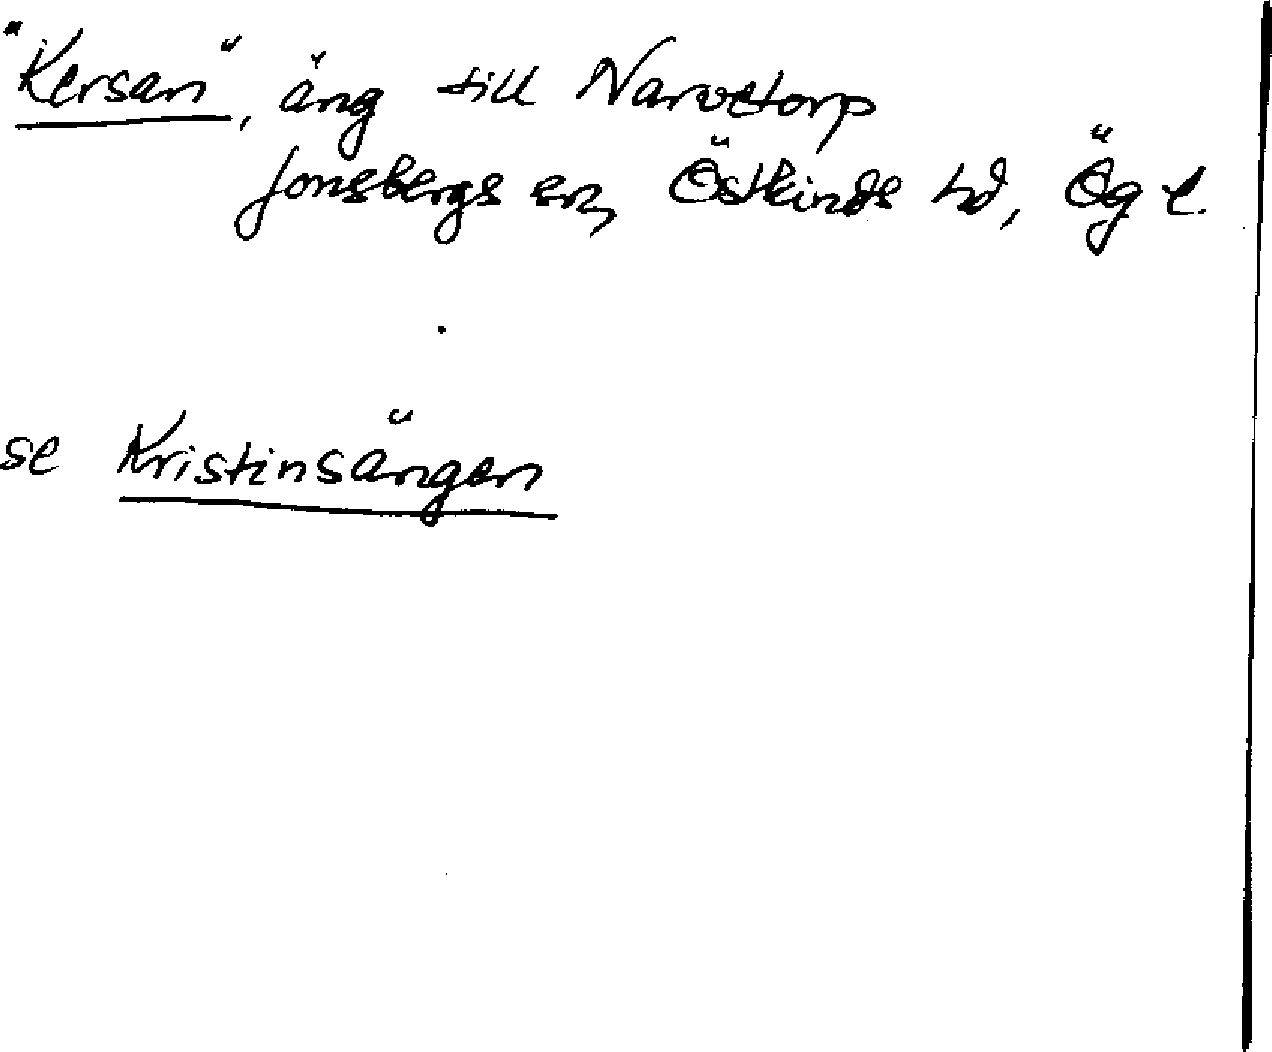 "Kersan", äng till Narvetorp
Jonsbergs sn, Östkinds hd, Ög l.
se Kristinsängen